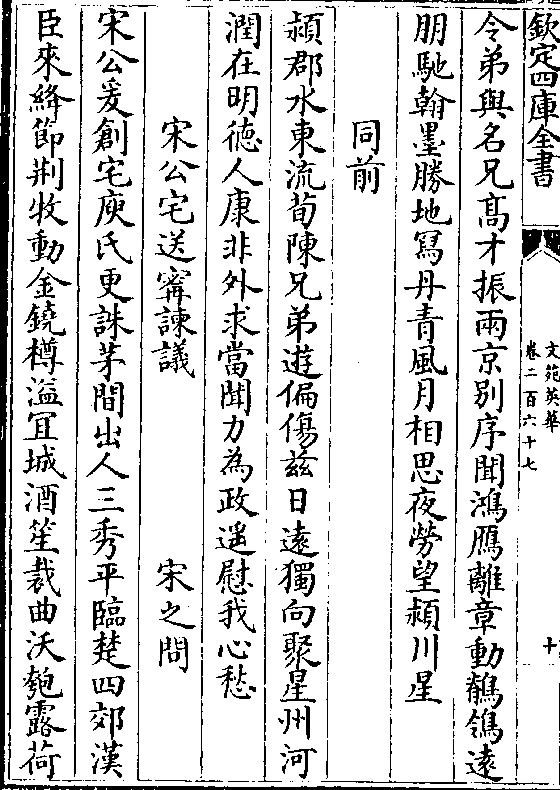 欽定四庫全書
文苑英華
卷二百六十七
十
令弟與名兄髙才振兩京别序聞鴻鴈離章動鶺鴒遠
朋馳翰墨勝地寫丹青風月相思夜勞望潁川星
同前
潁郡水東流荀陳兄弟遊偏傷兹日遠獨向聚星州河
潤在明徳人康非外求當聞力為政遥慰我心愁
宋公宅送甯諫議
宋之問
宋公爰創宅庾氏更誅茅間出人三秀平臨楚四郊漢
臣來絳節荆牧動金鐃樽溢宜城酒笙裁曲沃匏露荷